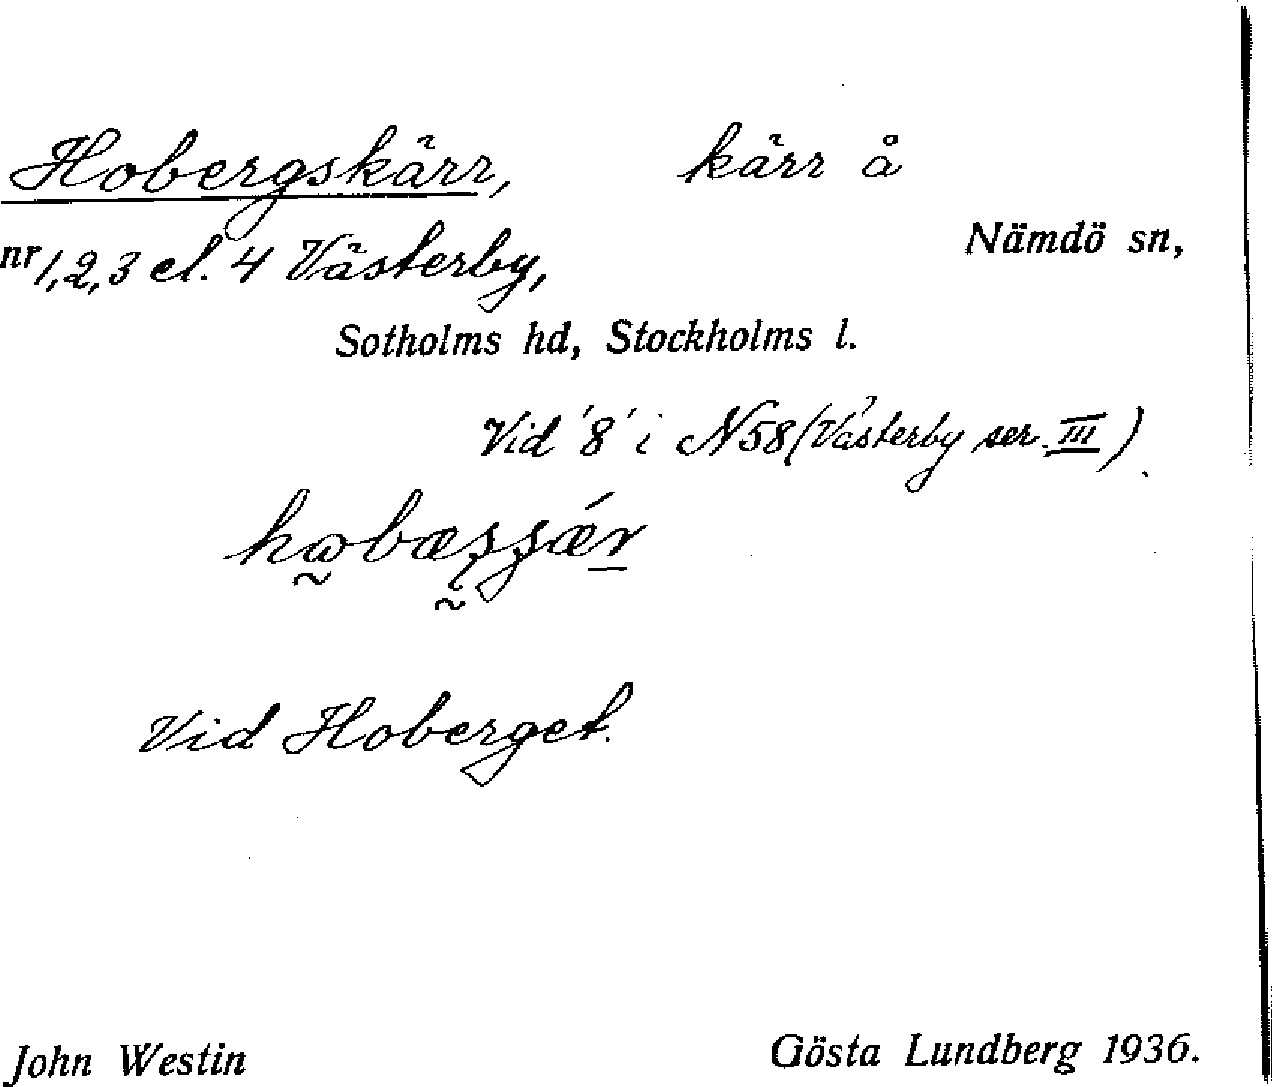 Hobergskärr, kärr å
nr 1,2,3 el. 4 Västerby, Nämdö sn,
Sotholms hd, Stockholms l.
Vid '8' i N58 (Västerby ser. III)
Vid Hoberget.
John Westin Gösta Lundberg 1936.